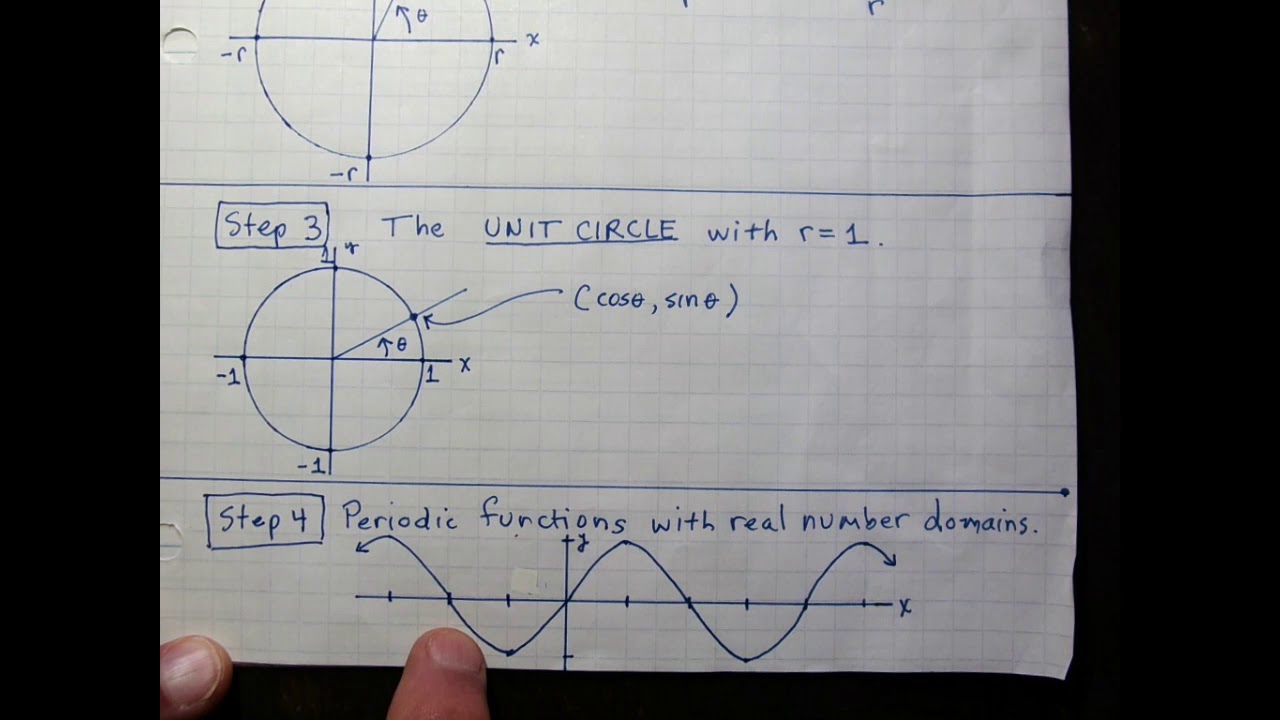 θ
x
-r
r
r
-r
Step 3 The UNIT CIRCLE with r=1.
1 y
(cosθ, sinθ)
θ
-1
1
x
-1
Step 4 Periodic functions with real number domains.
y
x